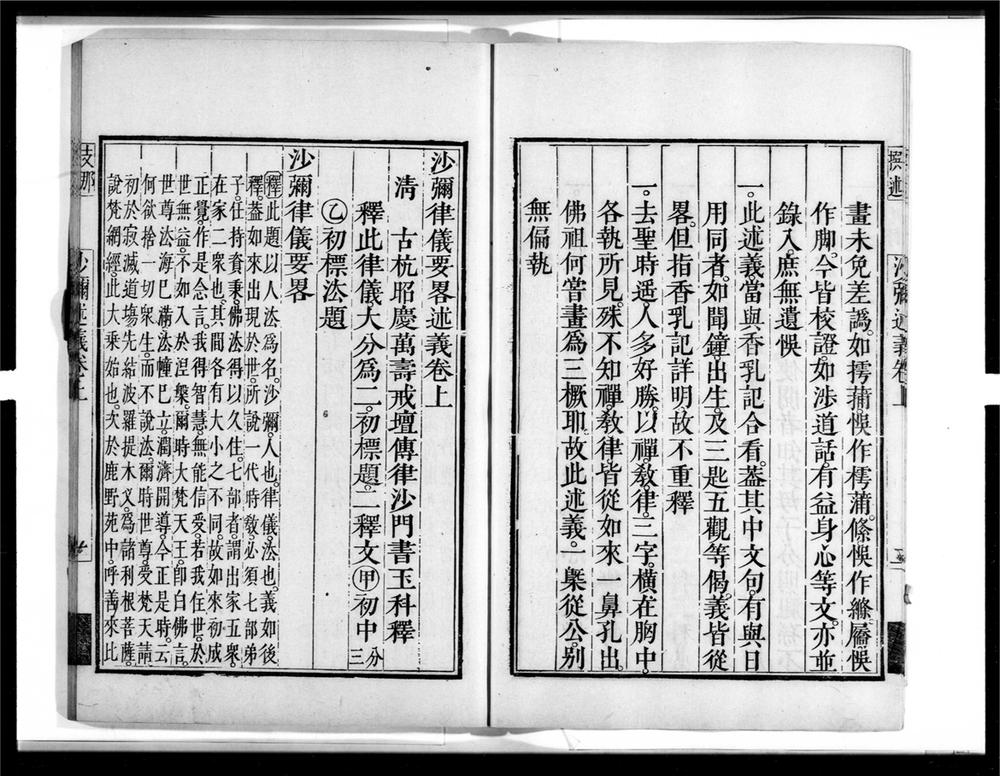 畫未免差譌。如摴蒱。悞作樗蒲。條悞作縧。屬悞
作脚。今皆校證。如涉道話有益身心等文。亦並
錄入。庶無遺悞
一。此述義當與香乳記合看。葢其中文句。有與日
用同者。如聞鐘。出生。及三匙五觀等偈。義皆從
畧。但指香乳記詳明。故不重釋
一。去聖時遥。人多好勝。以禪教律。三字。橫在胸中。
各執所見。殊不知禪。教律。皆從如來一鼻孔出。
佛祖何嘗畫爲三橛耶。故此述義。一槩從公。別
無偏執
沙彌律儀要畧述義卷上
清 古杭昭慶萬壽戒壇傳律沙門書玉科釋
釋此律儀大分爲二。初標題。二釋文㊙甲初中分三
乙初標法題
沙彌律儀要畧
釋此題以人法爲名。沙彌。人也。律儀。法也。義如後
釋。葢如來出現於世。所說一代時敎。必須七部弟
子。任持資秉。佛法得以久住。七部者。謂出家五衆。
在家二衆也。其間各有大小之不同。故如來初成
正覺。作是念言。我得智慧。無能信受。若我住世。於
世無益。不如入於涅槃。爾時大梵天王。卽白佛言。
世尊法海巳滿。法幢巳立。濶濟開導。今正是時。云
何欲捨一切衆生。而不說法。爾時世尊。受梵天請
初於寂滅道塲。先結波羅提木叉。爲諸利根菩薩。
說梵網經。此大乘始也。次於鹿野苑中。呼善來比
沙彌述義卷上
支那
撰述
沙彌述義卷上